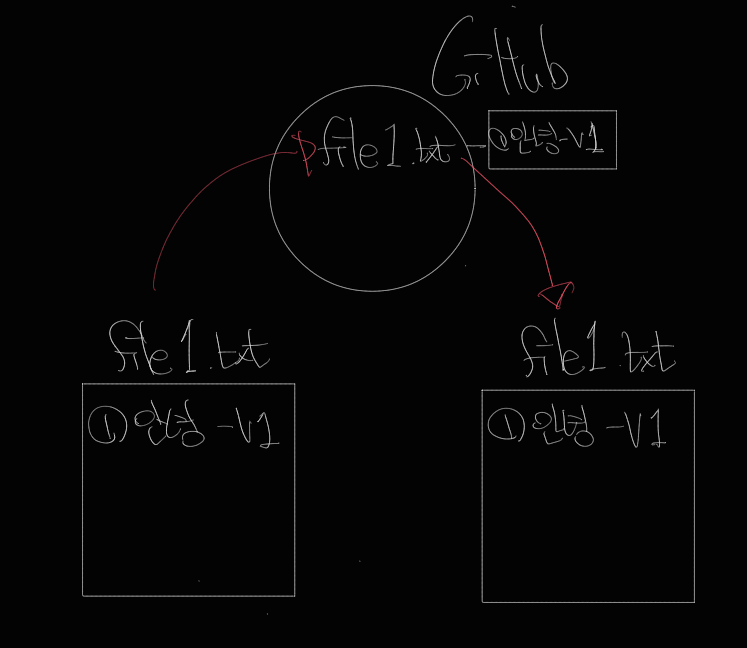 GitHub
file1.txt
①안녕-V1
file1.txt
①안녕-V1
file1.txt
①안녕-V1